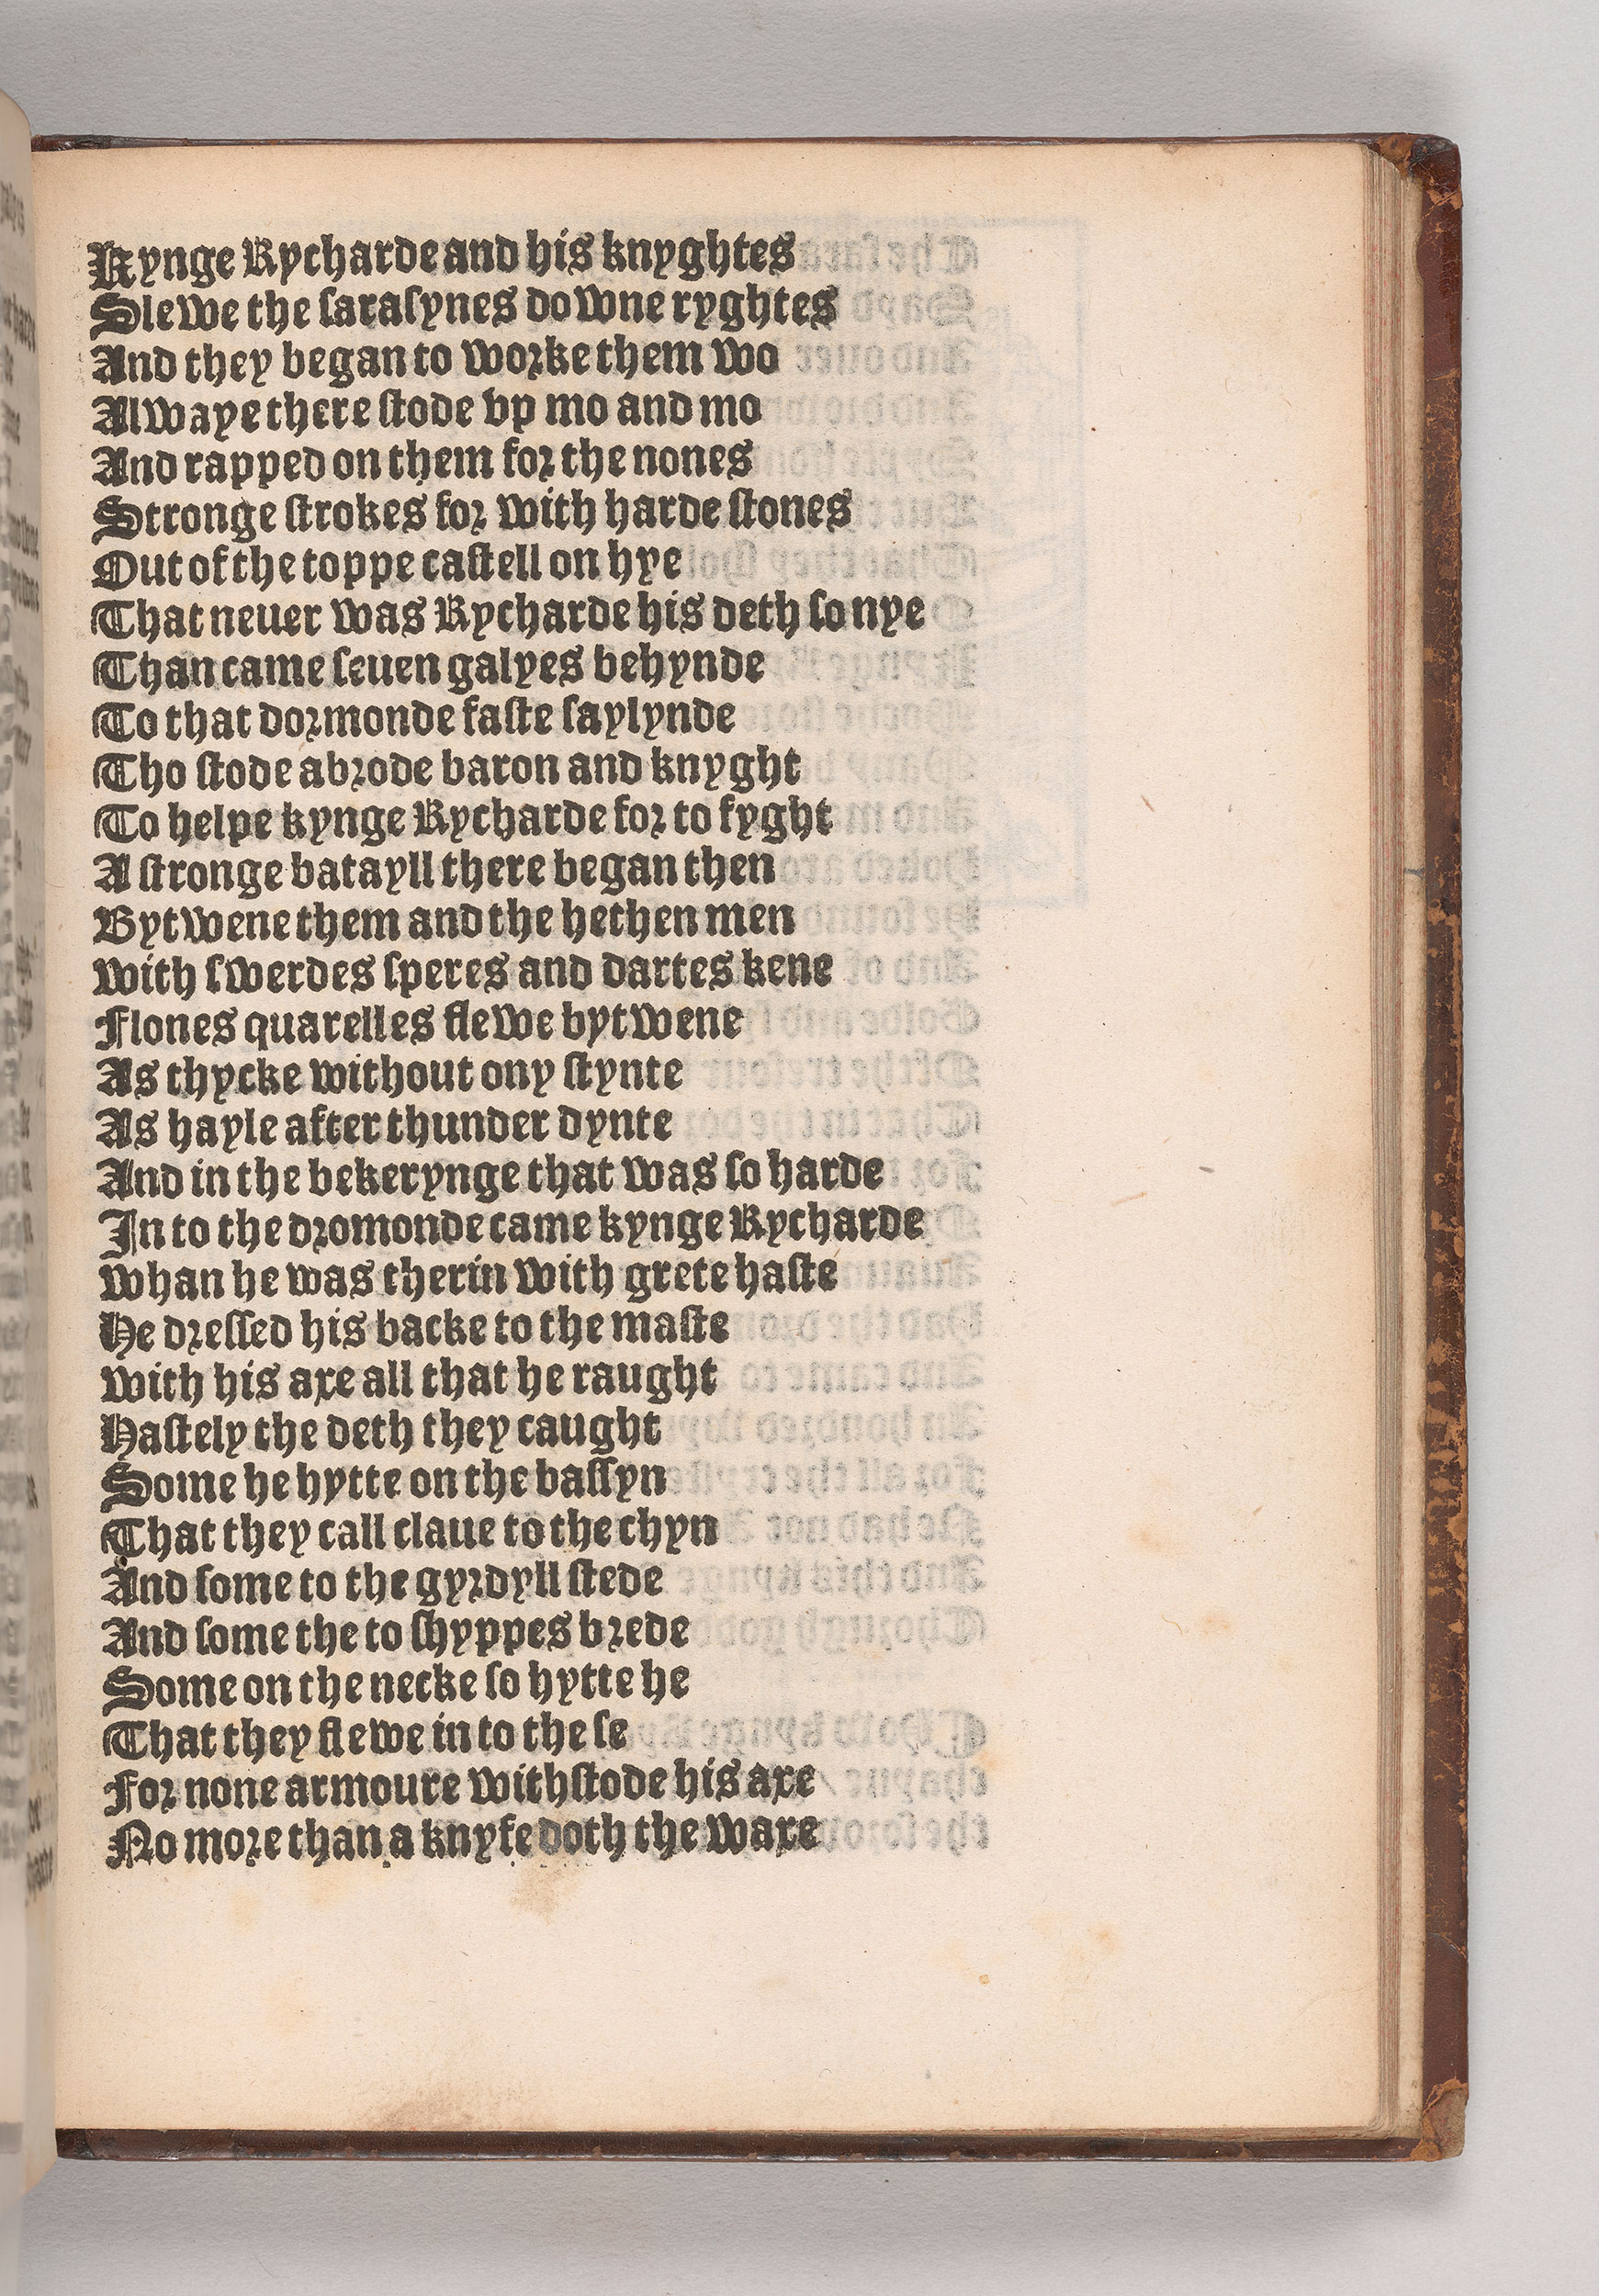 Kynge Rycharde and his knyghtes
Slewe the sarasynes downe ryghtes
And they began to worke them wo
Alwaye there stode vp mo and mo
And rapped on them for the nones
Stronge strokes for with harde stones
Out of the toppe castell on hye
That neuer was Rycharde his deth so nye
Than came seuen galyes behynde
To that dormonde faste saylynde
Tho stode abrode baron and knyght
To helpe kynge Rycharde for to fyght
A stronge batayll there began then
Bytwene them and the hethen men
with swerdes speres and dartes kene
Flones quarelles flewe bytwene
As thycke without ony stynte
As hayle after thunder dynte
And in the bekerynge that was so harde
In to the dromonde came kynge Rycharde
whan he was therin with grete haste
He dressed his backe to the maste
with his axe all that he raught
Hastely the deth they caught
Some he hytte on the bassyn
That they call claue to the chyn
And some to the gyrdyll stede
And some the to shyppes brede
Some on the necke so hytte he
That they flewe in to the se
For none armoure withstode his axe
No more than a knyfe doth the waxe